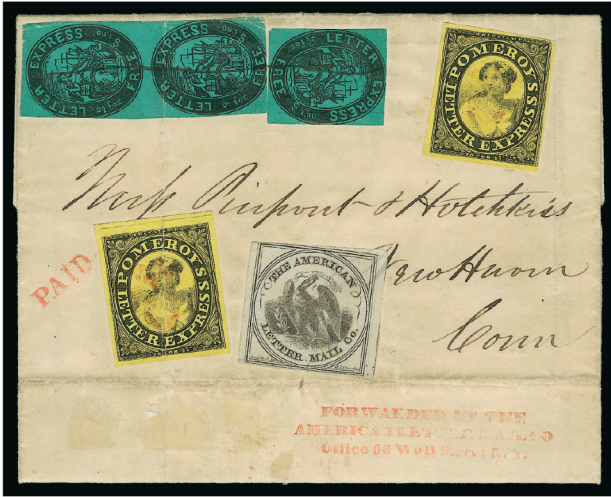 LETTER EXPRESS FREE
LETTER EXPRESS FREE
LETTER EXPRESS FREE
POMEROY'S LETTER EXPRESS
Mess Pierpont & Hotchkiss
New Haven
Conn
PAID
POMEROY'S LETTER EXPRESS
THE AMERICAN LETTER MAIL Co.
FORWARDED BY THE
AMERICAN LETTER MAIL CO
Office 56 Wall Street N. Y.